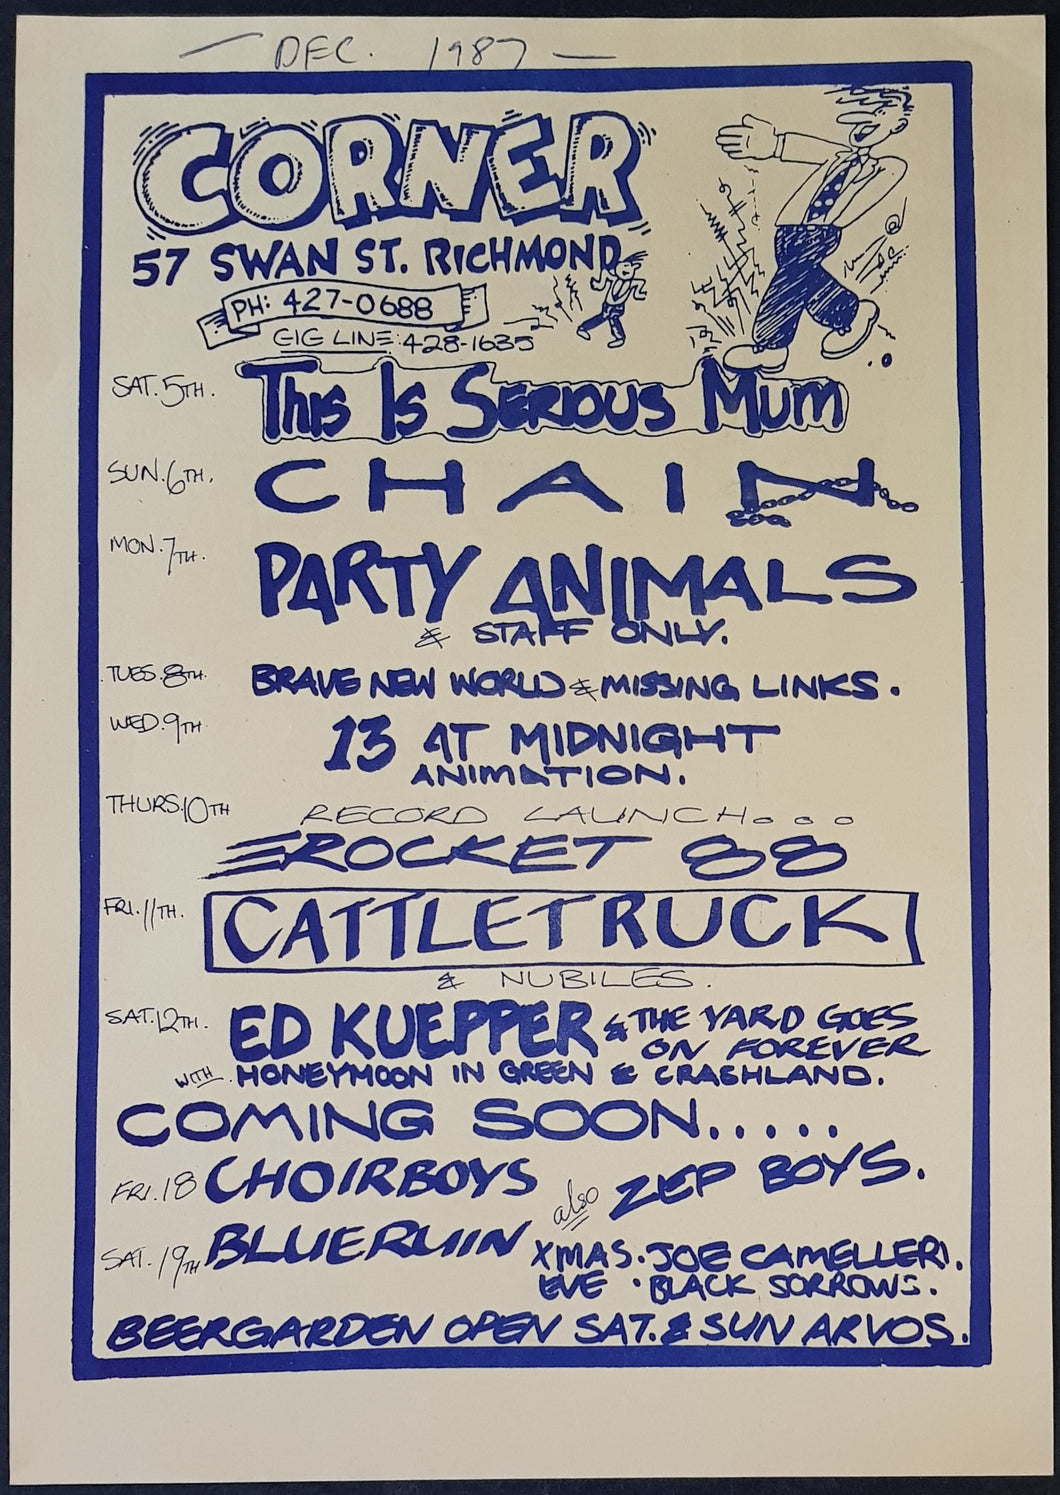 — DEC. 1987 —
CORNER
57 SWAN ST. RICHMOND
PH: 427-0688
GIG LINE: 428-1635
SAT. 5TH. THIS IS SERIOUS MUM
SUN. 6TH. CHAIN
MON. 7TH. PARTY ANIMALS
& STAFF ONLY.
TUES. 8TH. BRAVE NEW WORLD & MISSING LINKS.
WED. 9TH 13 AT MIDNIGHT
ANIMATION.
THURS. 10TH RECORD LAUNCH...
ROCKET 88
FRI. 11TH. CATTLETRUCK
& NUBILES.
SAT. 12TH. ED KUEPPER & THE YARD GOES
ON FOREVER
WITH HONEYMOON IN GREEN & CRASHLAND.
COMING SOON.....
FRI. 18 CHOIRBOYS also ZEP BOYS.
SAT. 19TH BLUERUIN XMAS. JOE CAMELLERI.
EVE • BLACK SORROWS.
BEERGARDEN OPEN SAT. & SUN ARVOS.